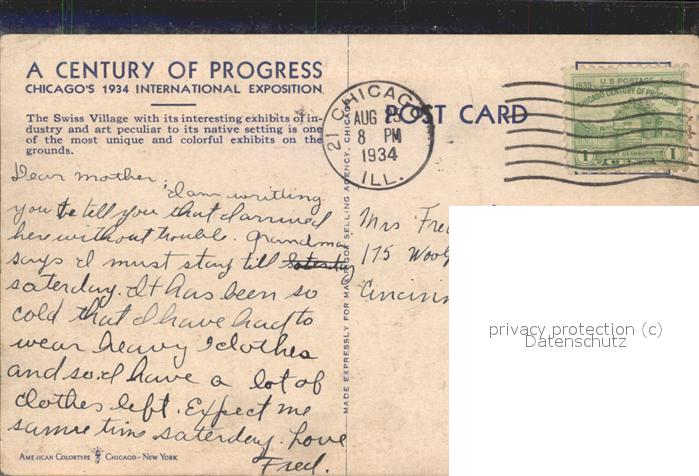 A CENTURY OF PROGRESS
CHICAGO'S 1934 INTERNATIONAL EXPOSITION
The Swiss Village with its interesting exhibits of in-
dustry and art peculiar to its native setting is one
of the most unique and colorful exhibits on the
grounds.
Dear Mother,
I am writting
you to tell you that I arrived
here without trouble. Grandma
says I must stay till Saterday
saterday. It has been so
cold that I have had to
wear heavy clothes
and so I have a lot of
clothes left. Expect me
samre time saterday. Love
Fred.
AMERICAN COLORTYPE CHICAGO-NEW YORK
MADE EXPRESSLY FOR MAJOR SELLING AGENCY, CHICAGO
21 CHICAGO
AUG 23
8 PM
1934
ILL.
POST CARD
U.S. POSTAGE
1833
CHICAGO CENTURY OF PROGRESS
1 CENT 1
Mrs Fre
175 Wool
Cincinn
privacy protection (c)
Datenschutz